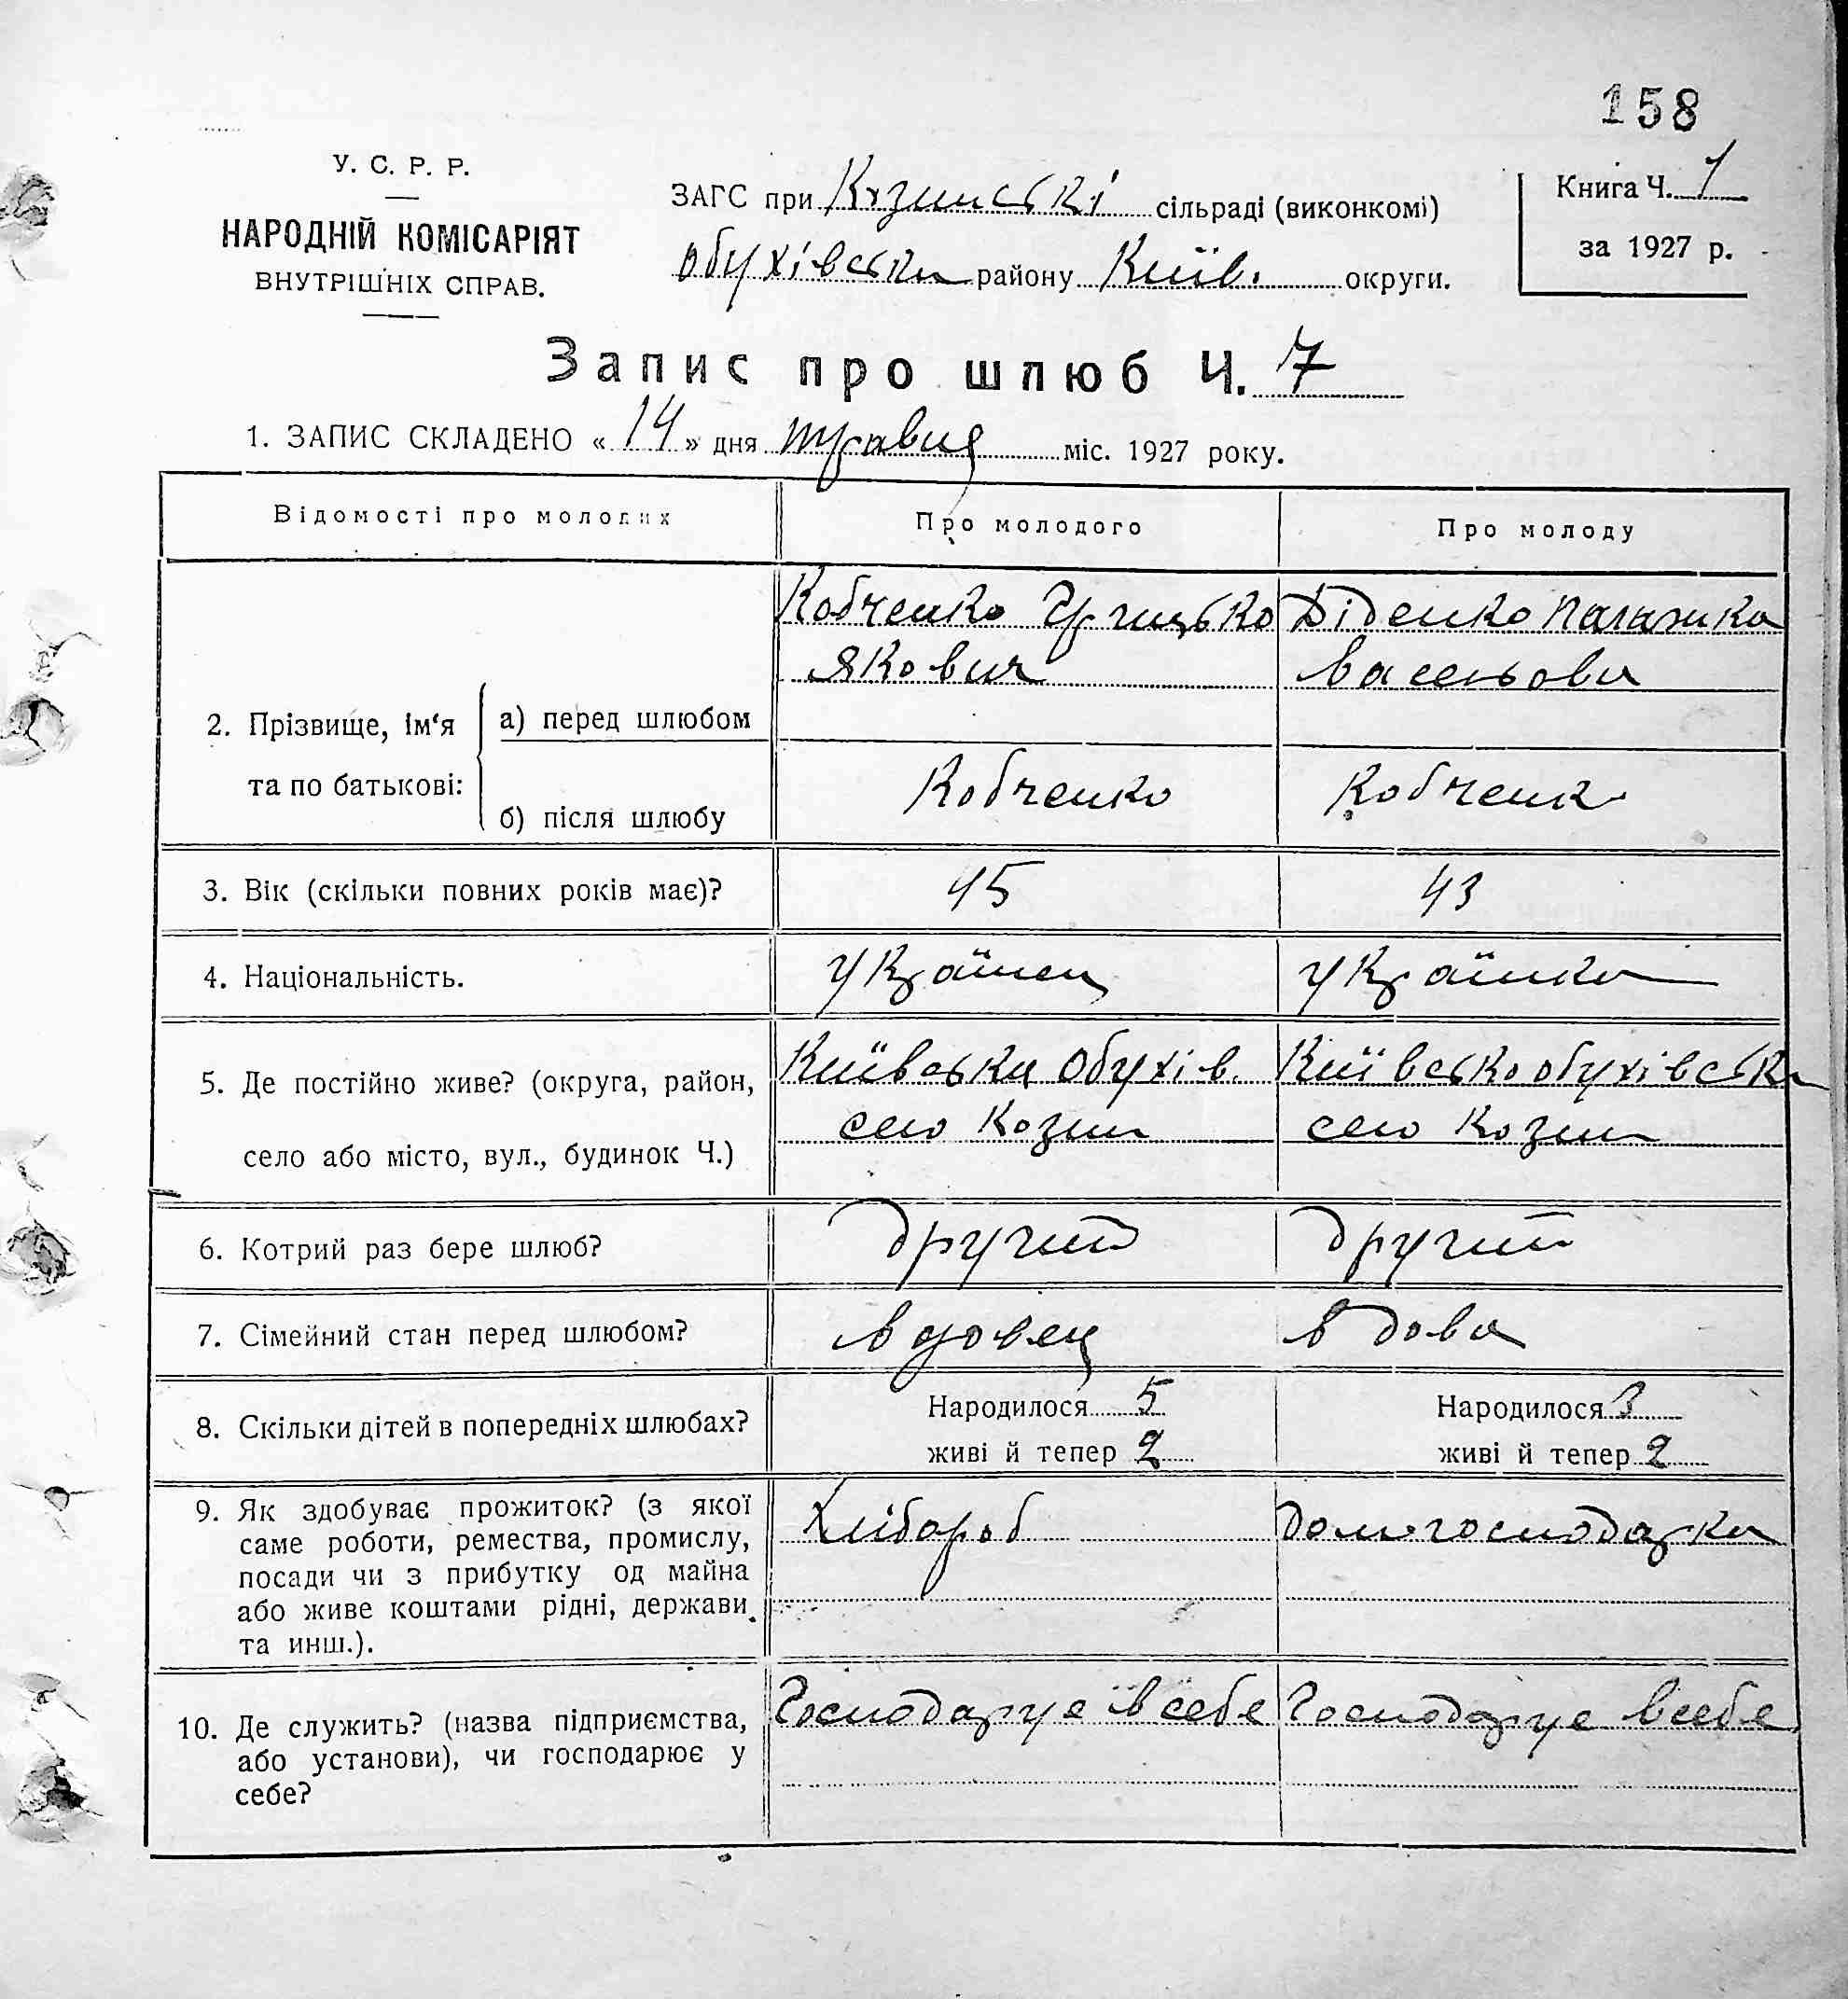 158
У. С. Р. Р.
НАРОДНІЙ КОМІСАРІЯТ
ВНУТРІШНІХ СПРАВ.
ЗАГС при Козинські сільраді (виконкомі)
Обухівськи району Київ. округи.
Книга Ч. 1
за 1927 р.
Запис про шлюб Ч. 7
1. ЗАПИС СКЛАДЕНО « 14 » дня травця міс. 1927 року.
Відомості про молодих
Про молодого
Про молоду
2. Прізвище, ім‘я та по батькові:
а) перед шлюбом
Кобченко Грицько
Якович
Діденко Палажка
б) після шлюбу
Кобченко
Кобченко
3. Вік (скільки повних років має)?
45
43
4. Національність.
українец
українка
5. Де постійно живе? (округа, район,
село або місто, вул., будинок Ч.)
Київська Обухів.
село Козин
Київсько обухівськ
село Козин
6. Котрий раз бере шлюб?
другий
другий
7. Сімейний стан перед шлюбом?
вдовец
вдова
8. Скільки дітей в попередніх шлюбах?
Народилося 5
живі й тепер 2
Народилося 3
живі й тепер 2
9. Як здобуває прожиток? (з якої
саме роботи, ремества, промислу,
посади чи з прибутку од майна
або живе коштами рідні, держави
та инш.).
Хлібороб
Домогосподарка
10. Де служить? (назва підприємства,
або установи), чи господарює у
себе?
Господарує в себе
Господарує в себе